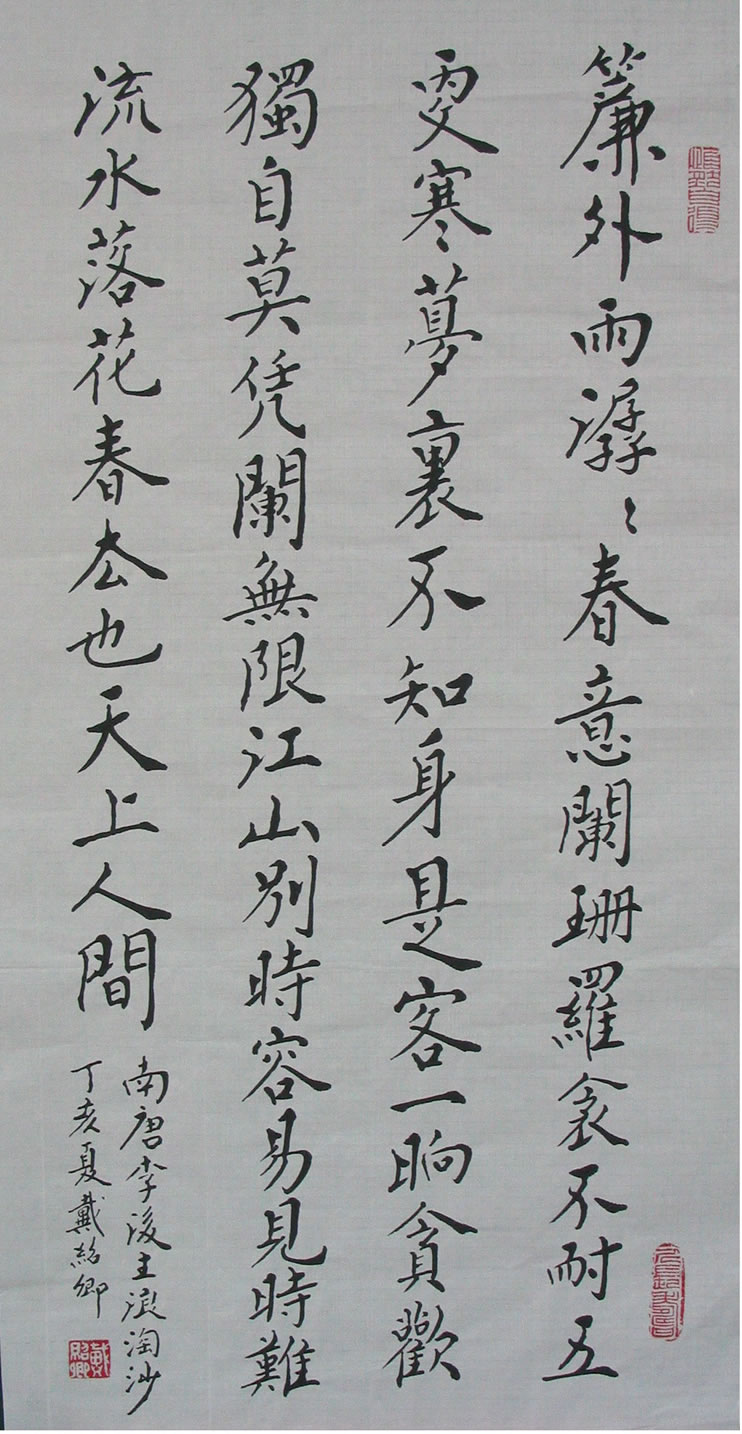 簾外雨潺〻春意闌珊羅衾不耐五
更寒夢裏不知身是客一晌貪歡
獨自莫凭闌無限江山別時容易見時難
流水落花春去也天上人間
南唐李後主浪淘沙
丁亥夏戴紹卿